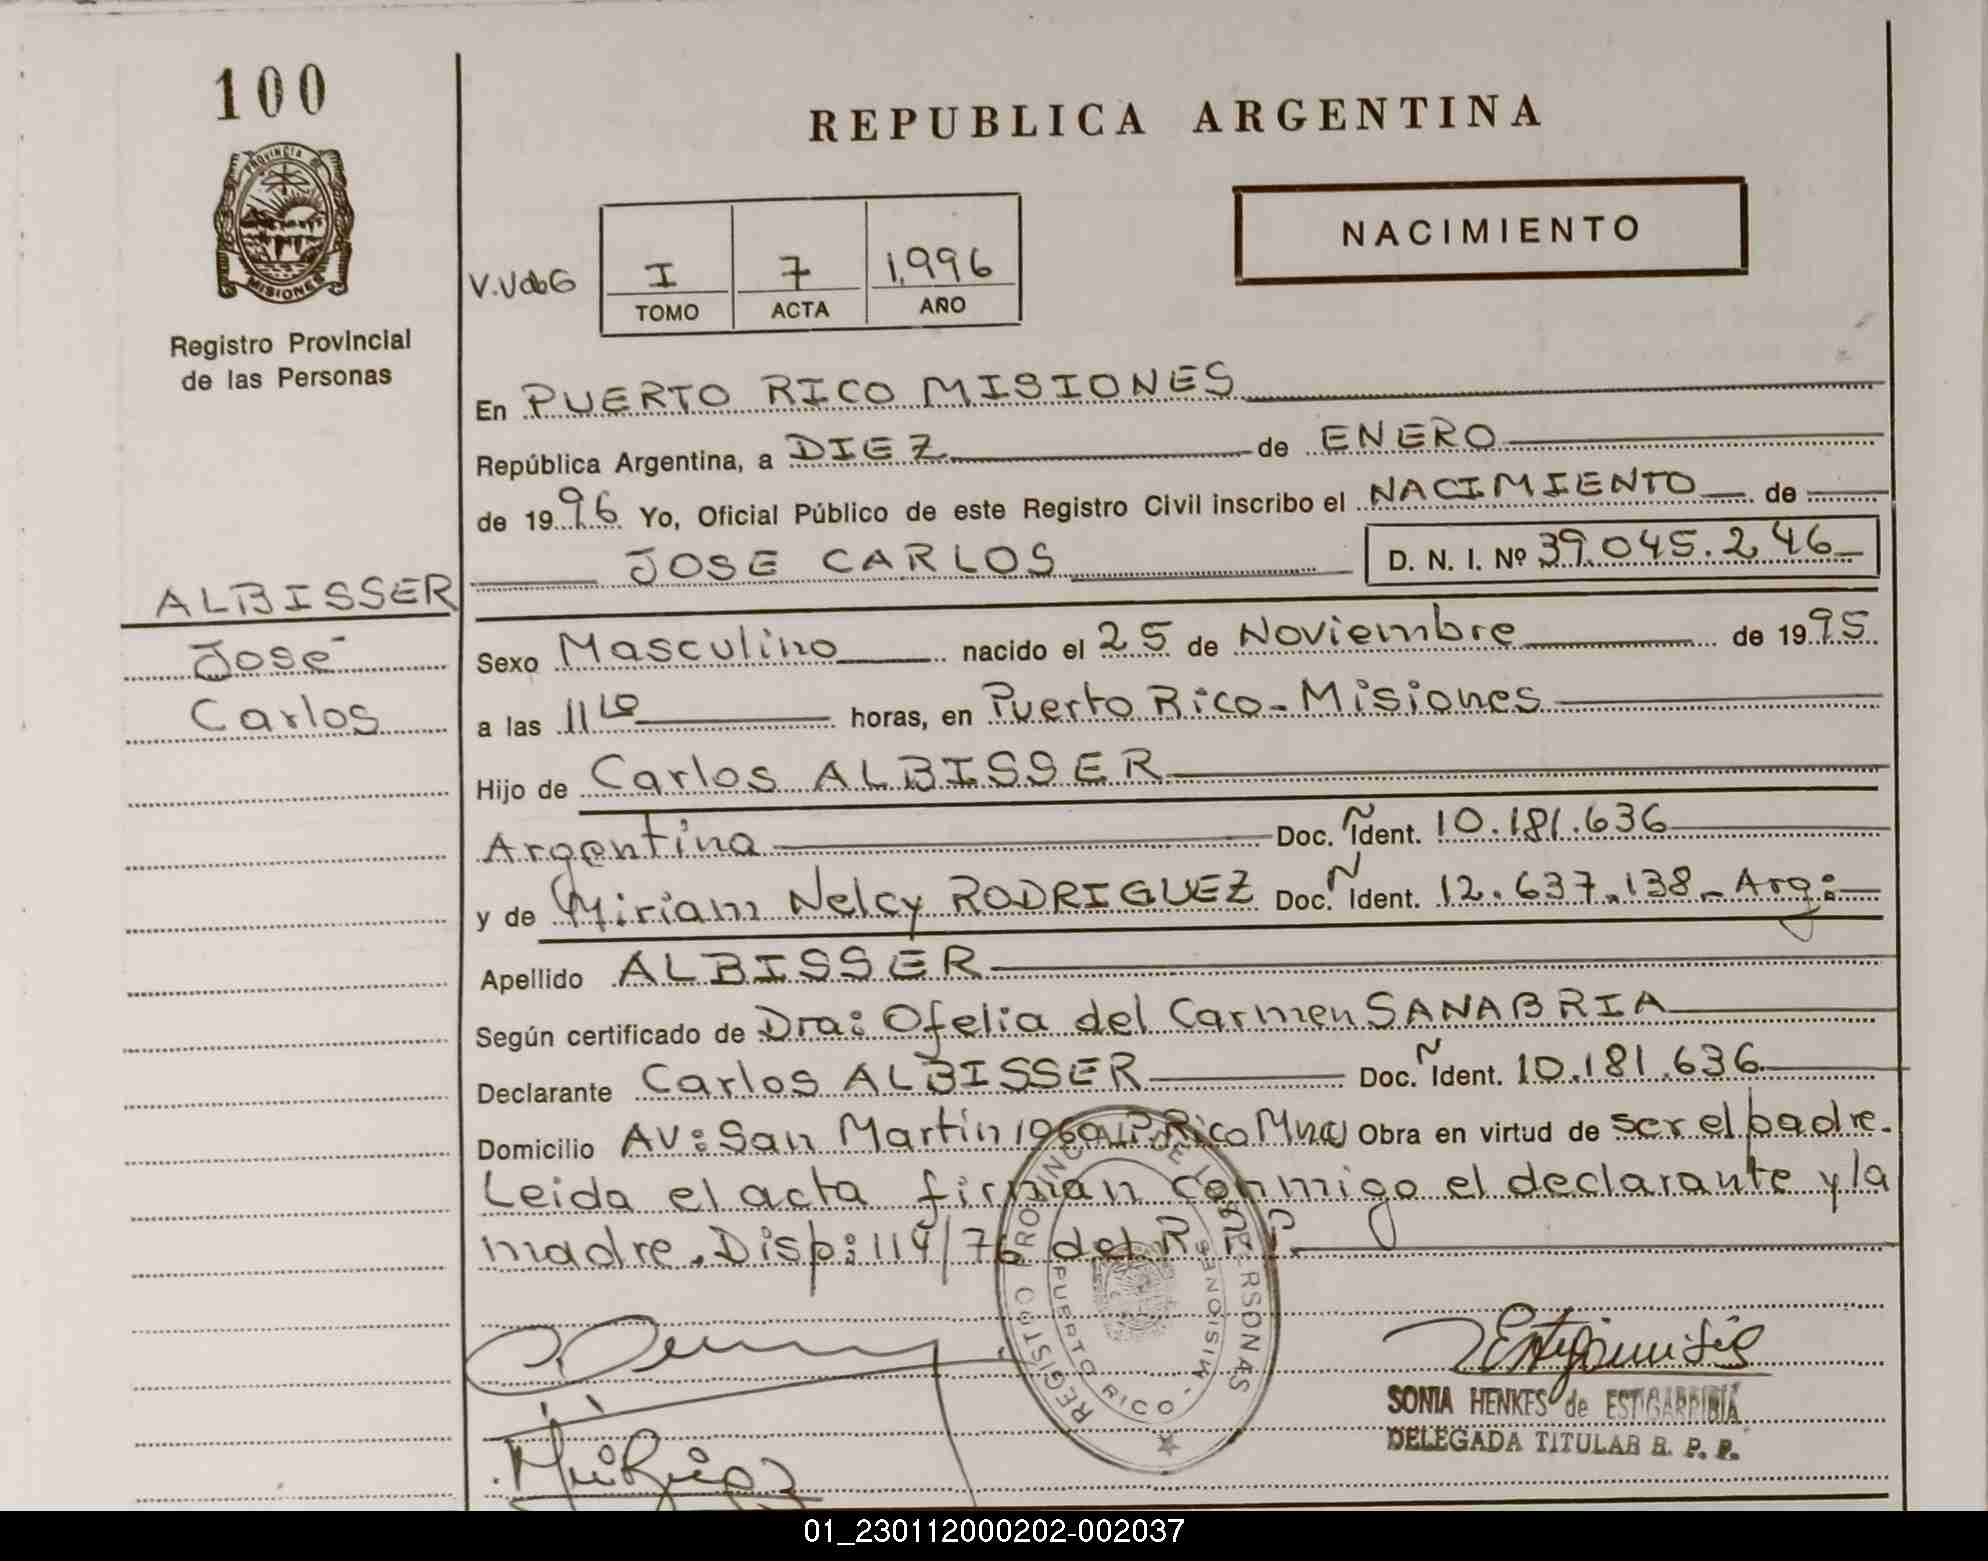 100
REPUBLICA ARGENTINA
PROVINCIA DE
MISIONES
NACIMIENTO
I 7 1.996
TOMO ACTA AÑO
Registro Provincial
de las Personas
En PUERTO RICO MISIONES
República Argentina, a DIEZ de ENERO
de 1996 Yo, Oficial Público de este Registro Civil inscribo el NACIMIENTO de
JOSE CARLOS D. N. I. Nº 39.045.246
ALBISSER
José
Carlos
Sexo Masculino nacido el 25 de Noviembre de 1995
a las 11 10 horas, en Puerto Rico - Misiones
Hijo de Carlos ALBISSER
Argentina Doc. Ident. 10.181.636
y de Miriam Nelcy RODRIGUEZ Doc. Ident. 12.637.138 - Arg:
Apellido ALBISSER
Según certificado de Dra: Ofelia del Carmen SANABRIA
Declarante Carlos ALBISSER Doc. Ident. 10.181.636
Domicilio AV: San Martín 1960 P. Rico Mnes Obra en virtud de ser el padre.
Leida el acta firman conmigo el declarante y la
madre. Disp: 114/76 del R. P. P.
REGISTRO PROVINCIAL DE LAS PERSONAS
PUERTO RICO - MISIONES
SONIA HENKES de ESTIGARRIBIA
DELEGADA TITULAR R. P. P.
01_230112000202-002037